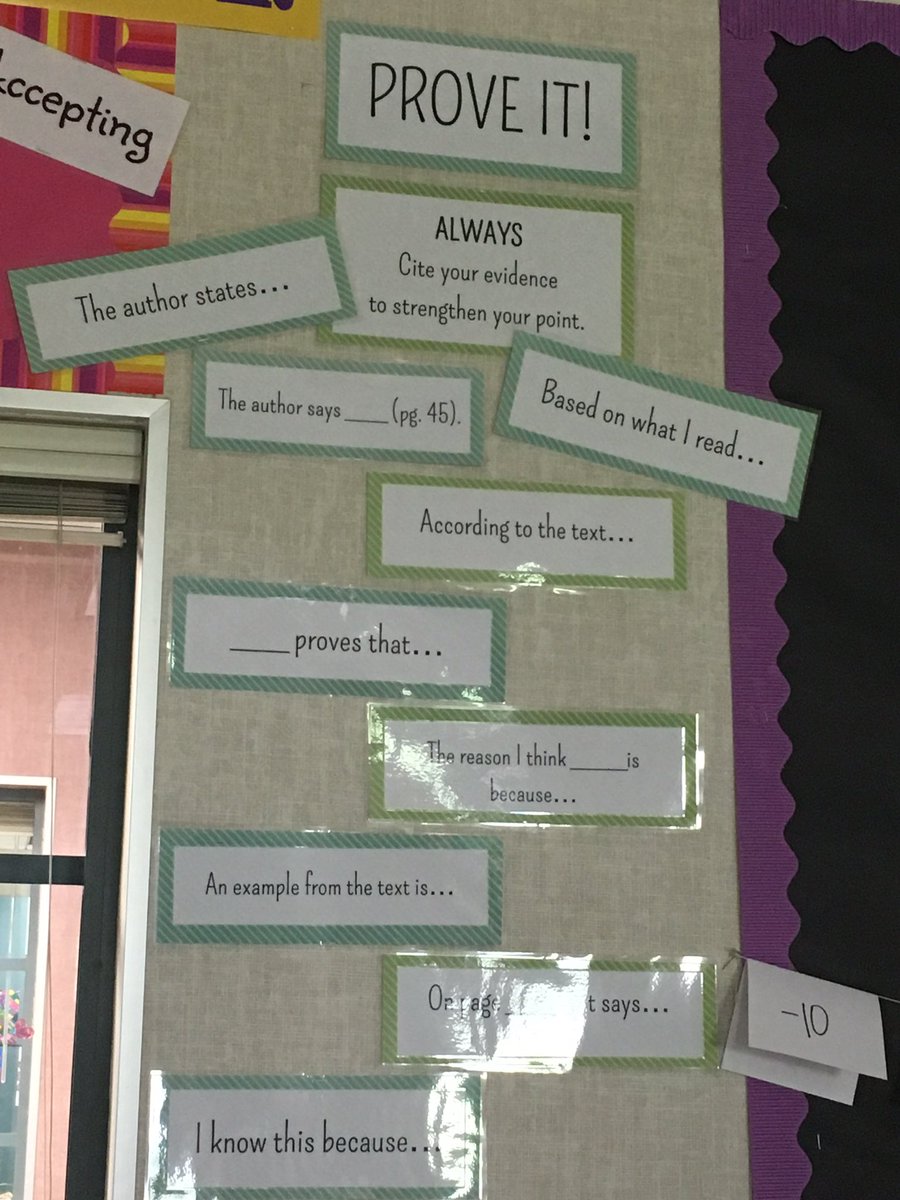 Accepting
PROVE IT!
ALWAYS
Cite your evidence
to strengthen your point.
The author states...
The author says ____ (pg. 45).
Based on what I read...
According to the text...
____ proves that...
The reason I think _____ is
because...
An example from the text is...
On page says...
-10
I know this because...